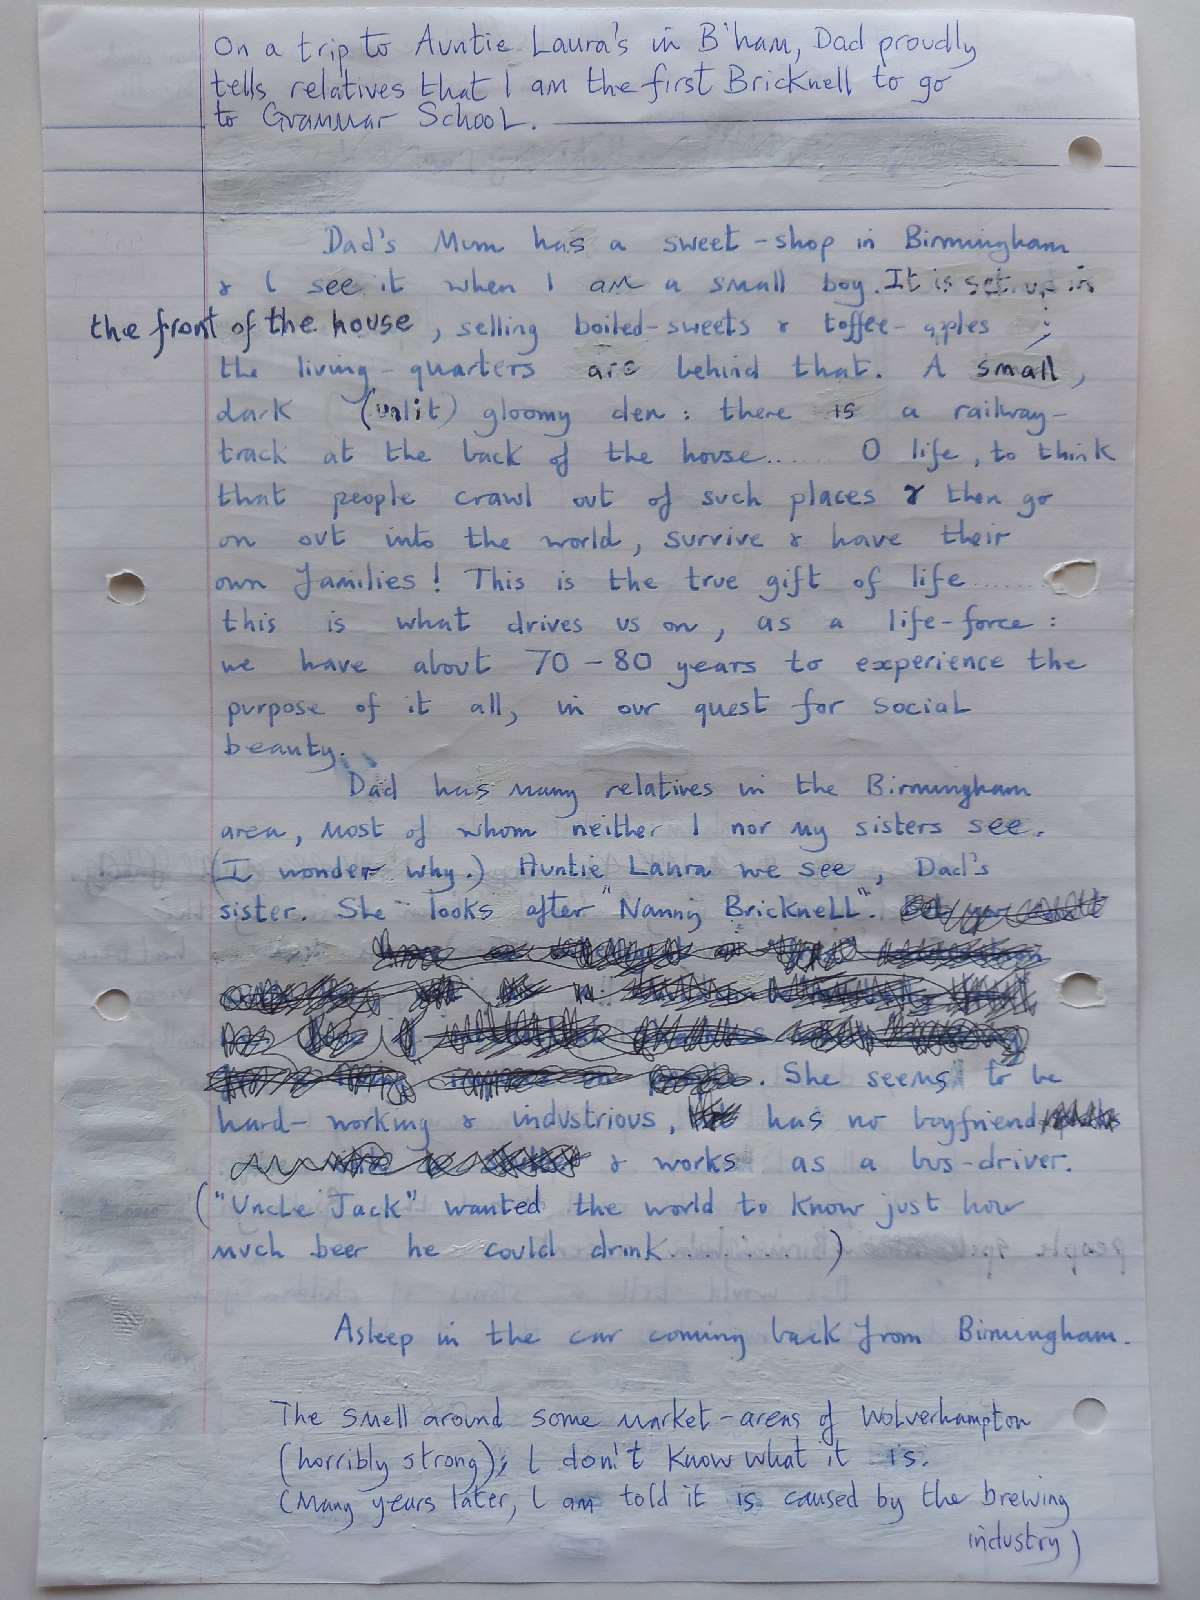 On a trip to Auntie Laura's in B'ham, Dad proudly
tells relatives that I am the first Bricknell to go
to Grammar School.
Dad's Mum has a sweet-shop in Birmingham
& I see it when I am a small boy. It is set up in
the front of the house, selling boiled-sweets & toffee-apples ;
the living-quarters are behind that. A small,
dark (unlit) gloomy den: there is a railway-
track at the back of the house...... O life, to think
that people crawl out of such places & then go
on out into the world, survive & have their
own families! This is the true gift of life.......
this is what drives us on, as a life-force:
we have about 70-80 years to experience the
purpose of it all, in our quest for social
beauty.
Dad has many relatives in the Birmingham
area, most of whom neither I nor my sisters see.
(I wonder why.) Auntie Laura we see, Dad's
sister. She looks after "Nanny Bricknell".
. She seems to be
hard-working & industrious, has no boyfriend
& works as a bus-driver.
("Uncle Jack" wanted the world to know just how
much beer he could drink..........)
Asleep in the car coming back from Birmingham.
The smell around some market-areas of Wolverhampton
(horribly strong); I don't know what it is.
(Many years later, I am told it is caused by the brewing
industry)